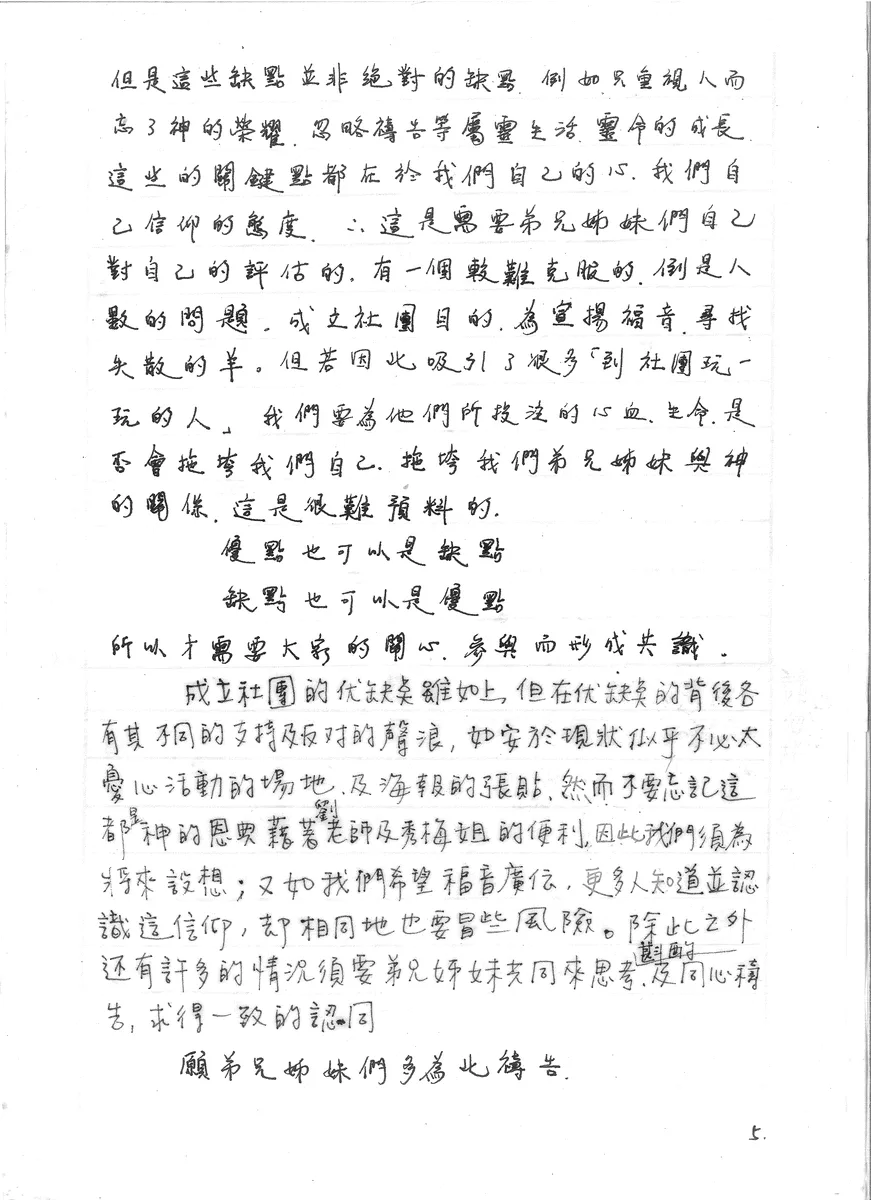 但是這些缺點並非絕對的缺點. 例如只重視人而
忘了神的榮耀. 忽略禱告等屬靈生活. 靈命的成長.
這些的關鍵點都在於我們自己的心. 我們自
己信仰的態度. ∴這是需要弟兄姊妹們自己
對自己的評估的. 有一個較難克服的. 倒是人
數的問題. 成立社團目的. 為宣揚福音. 尋找
失散的羊。但若因此吸引了很多「到社團玩一
玩的人」 我們要為他們所投注的心血. 生命. 是
否會拖垮我們自己. 拖垮我們弟兄姊妹與神
的關係. 這是很難預料的.
優點也可以是缺點
缺點也可以是優點
所以才需要大家的關心. 參與而形成共識.
成立社團的优缺奌雖如上, 但在优缺奌的背後各
有其不同的支持及反对的聲浪, 如安於現狀似乎不必太
憂心活動的場地、及海報的張貼、然而不要忘記這
都是神的恩典藉著劉老師及秀梅姐的便利, 因此我們須為
將來設想; 又如我們希望福音廣传, 更多人知道並認
識這信仰, 却相同地也要冒些風險。除此之外
还有許多的情況須要弟兄姊妹共同來思考、斟酌及同心禱
告, 求得一致的認同
願弟兄姊妹們多為此禱告.
5.